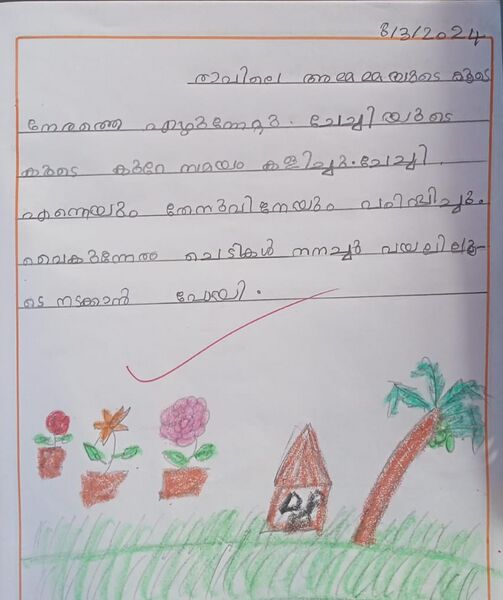 8/3/2024
രാവിലെ അമ്മമ്മയുടെ കൂടെ
നേരത്തെ എഴുന്നേറ്റു. ചേച്ചിയുടെ
കൂടെ കുറേ സമയം കളിച്ചു. ചേച്ചി
എന്നെയും തേനുവിനേയും പഠിപ്പിച്ചു.
വൈകുന്നേരം ചെടികൾ നനച്ചു വയലിലൂ-
ടെ നടക്കാൻ പോയി.